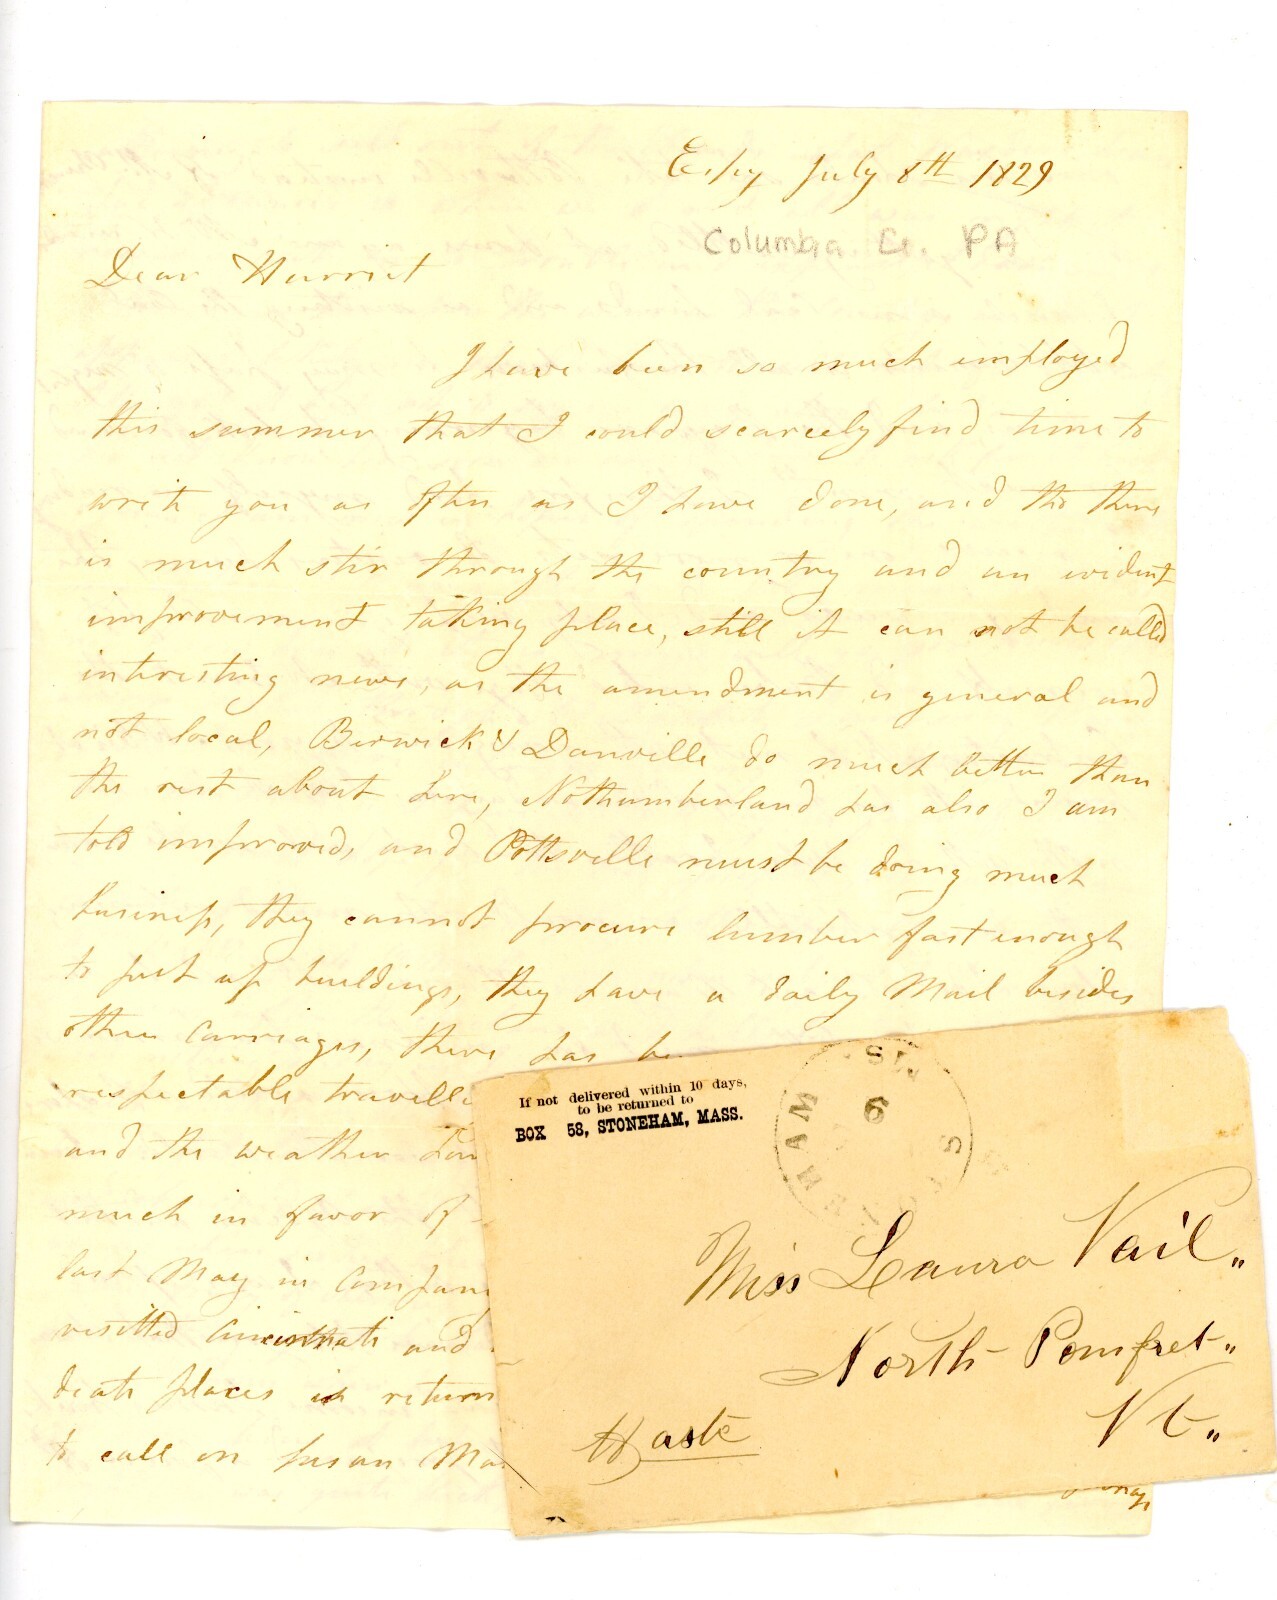 Espy July 8th 1829
Columbia Co. PA
Dear Harriet
I have been so much employed
this summer that I could scarcely find time to
write you as often as I have done, and tho there
is much stir through the country and an evident
improvement taking place, still it can not be called
interesting news, as the amendment is general and
not local, Berwick & Danville do much better than
the rest about here, Nothumberland has also I am
told improved, and Pottsville must be doing much
business, they cannot procure lumber fast enough
to put up buildings, they have a daily Mail besides
other carriages, there has be
respectable travelle
and the weather
much in favor of
last May in Compan
visitted Cincinnati and
places in return
to call on Susan Ma
If not delivered within 10 days,
to be returned to
BOX 58, STONEHAM, MASS.
6
Miss Laura Vail"
North Pomfret"
Vt"
Haste